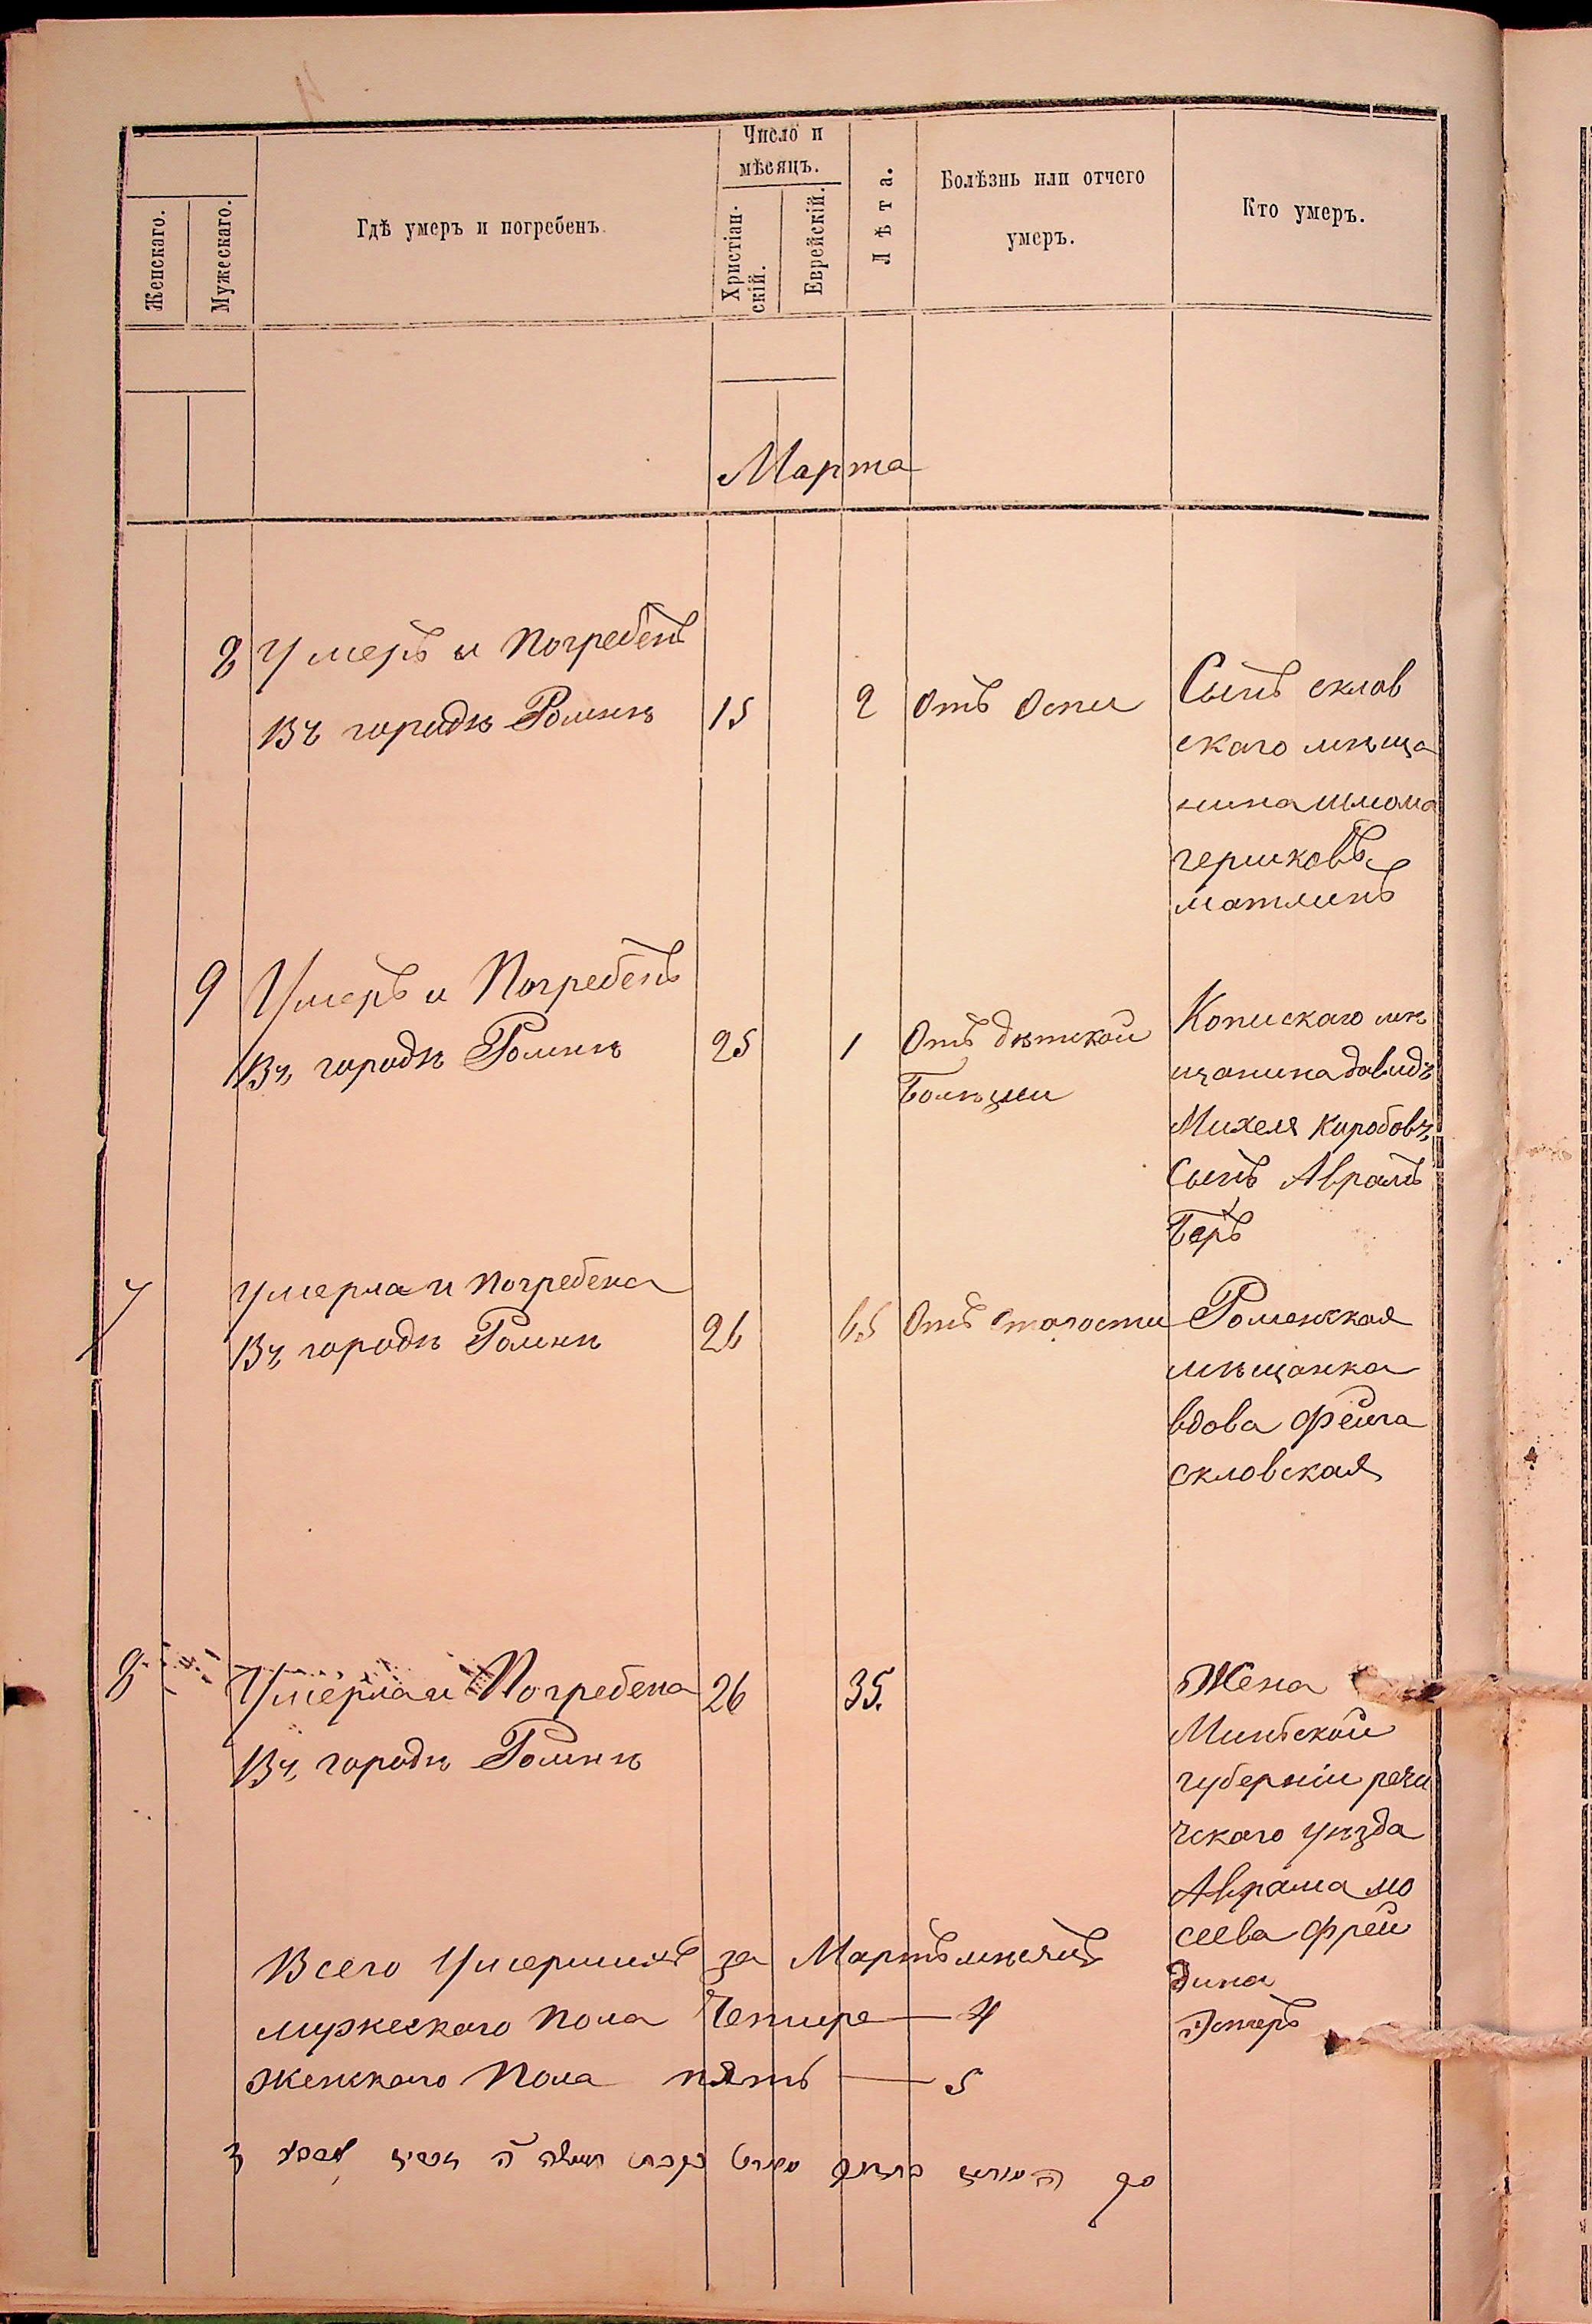 Женскаго.
Мужескаго.
Гдѣ умеръ и погребенъ.
Число и
мѣсяцъ.
Христіан-
скій.
Еврейскій.
Лѣта.
Болѣзнь или отчего
умеръ.
Кто умеръ.
Марта
8 Умеръ и Погребенъ
Въ городѣ Ромнѣ 15 2 Отъ Оспи
Сынъ склов
скаго мѣща
нина Шлома
гершковъ
матлинъ
9 Умеръ и Погребенъ
Въ городѣ Ромнѣ 25 1 Отъ дѣтской
Болѣзни
Копискаго мѣ
щанина давидъ
Михеля
Сынъ Аврамъ
Беръ
7 Умерла и Погребена
Въ городѣ Ромнѣ 26 65 Отъ старости
Роменская
мѣщанка
вдова Фейга
скловская
8 Умерла и Погребена 26 35.
Въ городѣ Ромнѣ
Жена
Минской
губерніи речи
цкаго уѣзда
Аврама мо
сеева Фрей
дина
Эстеръ
Всего Умершихъ за Мартъ мѣсяцъ
мужескаго Пола Четире — 4
Женскаго Пола пять — 5